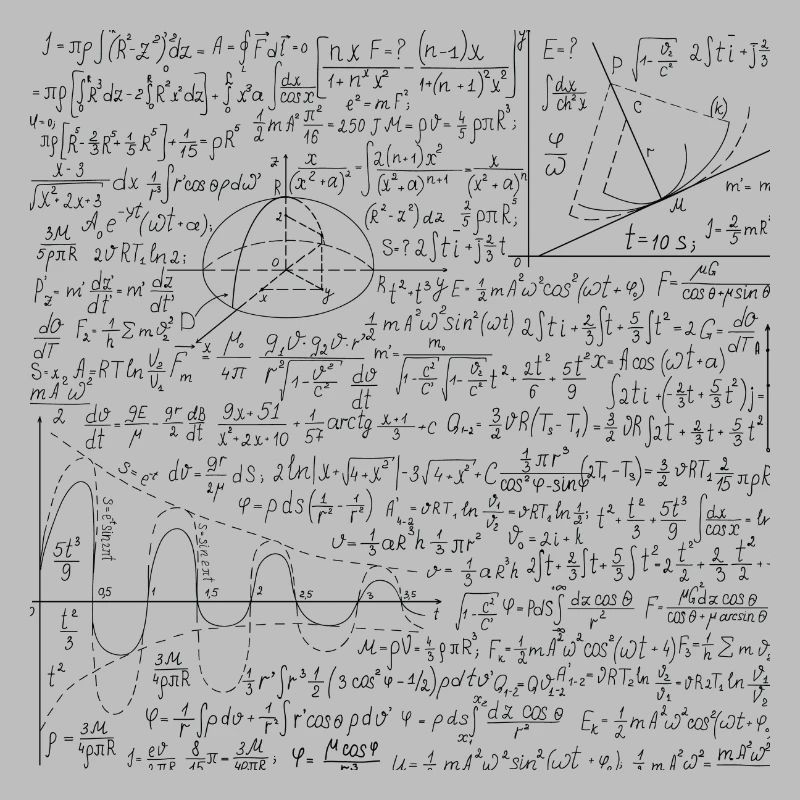 J = πρ∫(R²-z²)²dz = A = ∮F⃗dl⃗ = 0 [ nx F=? / 1+nˣx² - (n-1)x / 1+(n+1)²x² ] y E=? P √1-v²/c² 2∫ti+j2/3
= πρ[∫R³dz-2∫R²x²dz] + ∫x³a ∫dx/cosx ∫dx/ch²x C (k)
e²=mF²;
y=0; πρ[R⁵-2/3R⁵+1/5R⁵]+1/15=ρR⁵ 1/2mA²π²/16=250 J M=ρV=4/5ρπR³; φ/ω r
x-3/√x²+2x+3 dx 1/r³∫r'cosθρdω' z R x/(x²+a)² =∫2(n+1)x²/(x²+a)ⁿ⁺¹ = x/(x²+a)ⁿ m'=m
A₀e⁻ʸᵗ(ωt+a); 2 (R²-z²)dz 2/5ρπR⁵; M
3M/5ρπR 2υRT₁ln2; 0 S=? 2∫ti+j2/3t t=10 s; J=2/5mR²
0
P'z=m'dz'/dt'=m'dz/dt' x y Rt²+t³y E=1/2mA²ω²cos²(ωt+φ₀) F=μG/cosθ+μsinθ
D
dO/dT F₂=1/h Σmv₂² 1/2mA²ω²sin²(ωt) 2∫ti+2/3∫t+5/3∫t²=2G=dO/dTA
S=x₂ A=RTln V₂/V₁ Fm x μ₀/4π g₁v·g₂v·r'/r²√1-v²/c² dv/dt m'=m₀/√1-c²/c'√1-v²/c² t²+2t²/6+5t²/9 x=Acos(ωt+a)
mA²ω²/2 ∫2ti+(-2/3t+5/3t²)j=
dv/dt=gE/μ-gr/2 dB/dt 9x+51/x²+2x+10+1/57arctg x+1/3+c Q₁₋₂=3/2υR(T₃-T₁)=3/2υR∫2t+2/3t+5/3t²
S=e⁻ᵗ dv=gr/2μ dS; 2ln|x+√4+x²|-3√4+x²+C 1/3πr³/cos²φ-sinφ(2T₁-T₃)=3/2υRT₁2/15πρR
S=eᵗsin2πt S=sin2πt φ=ρds(1/r²-1/r²) A'₄₋₂=υRT₁ln υ₁/υ₂=υRT₁ln1/2; t²+t²/3+5t³/9 ∫dx/cosx=ln
5t³/9 υ=1/3aR³h 1/3πr² V₀=2i+k
υ=1/3aR³h 2∫t+2/3∫t+5/3∫t²=2t²/2+2/3 t²/2+
0,5 1 1,5 2 2,5 3 3,5 t
t²/3 √1-c²/C' φ=Pds∫dzcosθ/r² F=μG²dzcosθ/cosθ+μarcsinθ
t² 3M/4ρπR M=ρV=4/3ρπR³; Fκ=1/2mA²ω²cos²(ωt+4)F₃=1/h Σmv₂
1/3r'∫r³1/2(3cos²φ-1/2)ρdτv'Q₁₋₂=Qυ₁₋₂A'₁₋₂=υRT₂ln υ₂/υ₁=υR2T₁ln V₁/V₂
ρ=3M/4ρπR φ=1/r∫ρdυ+1/r²∫r'cosθρdυ' φ=ρds∫dzcosθ/r² Eκ=1/2mA²ω²cos²(ωt+φ₀
J=eυ/2πR 8/15π=3M/4ρπR; φ=μcosφ/r³ U=1/2mA²ω²sin²(ωt+φ₀); 1/2mA²ω²=mA²ω²